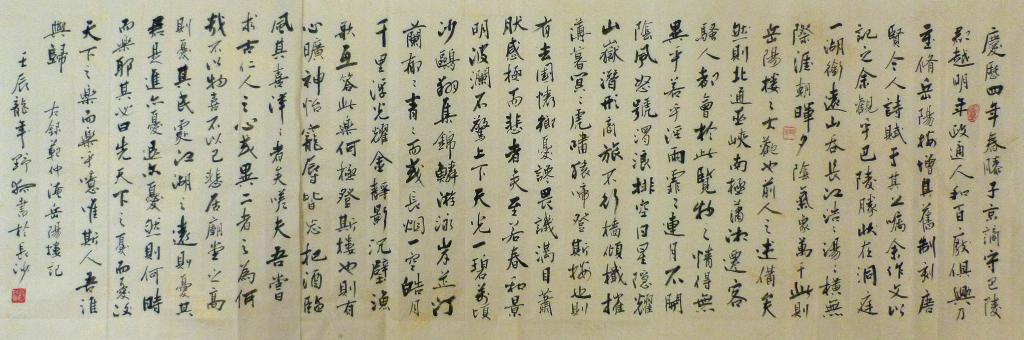 慶歷四年春滕子京謫守巴陵
郡越明年政通人和百廢俱興乃
重脩岳陽樓增其舊制刻唐
賢今人詩賦于其上囑余作文以
記之余觀乎巴陵勝狀在洞庭
一湖銜遠山吞長江浩〻湯〻橫無
際涯朝暉夕陰氣象萬千此則
岳陽樓之大觀也前人之述備矣
然則北通巫峽南極瀟湘遷客
騷人都會於此覽物之情得無
異乎若乎淫雨霏〻連月不開
陰風怒號濁浪排空日星隱耀
山嶽潛形商旅不行檣傾檝摧
薄暮冥〻虎嘯猿啼登斯樓也則
有去國懷鄉憂讒畏譏滿目蕭
然感極而悲者矣至若春和景
明波瀾不驚上下天光一碧萬頃
沙鷗翔集錦鱗游泳岸芷汀
蘭郁〻青〻而或長烟一空皓月
千里浮光耀金靜影沉璧漁
歌互答此樂何極登斯樓也則有
心曠神怡寵辱皆忘把酒臨
風其喜洋〻者矣嗟夫吾嘗
求古仁人之心或異二者之為何
哉不以物喜不以己悲居廟堂之高
則憂其民處江湖之遠則憂其
君是進亦憂退亦憂然則何時
而樂耶其必曰先天下之憂而憂後
天下之樂而樂乎噫微斯人吾誰
與歸
右錄范仲淹岳陽樓記
壬辰龍年野 書於長沙